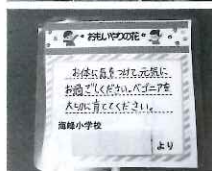 おもいやりの花
お体に気をつけて、元気に
お過ごしください。ベゴニアを
大切に育ててください。
小学校
より